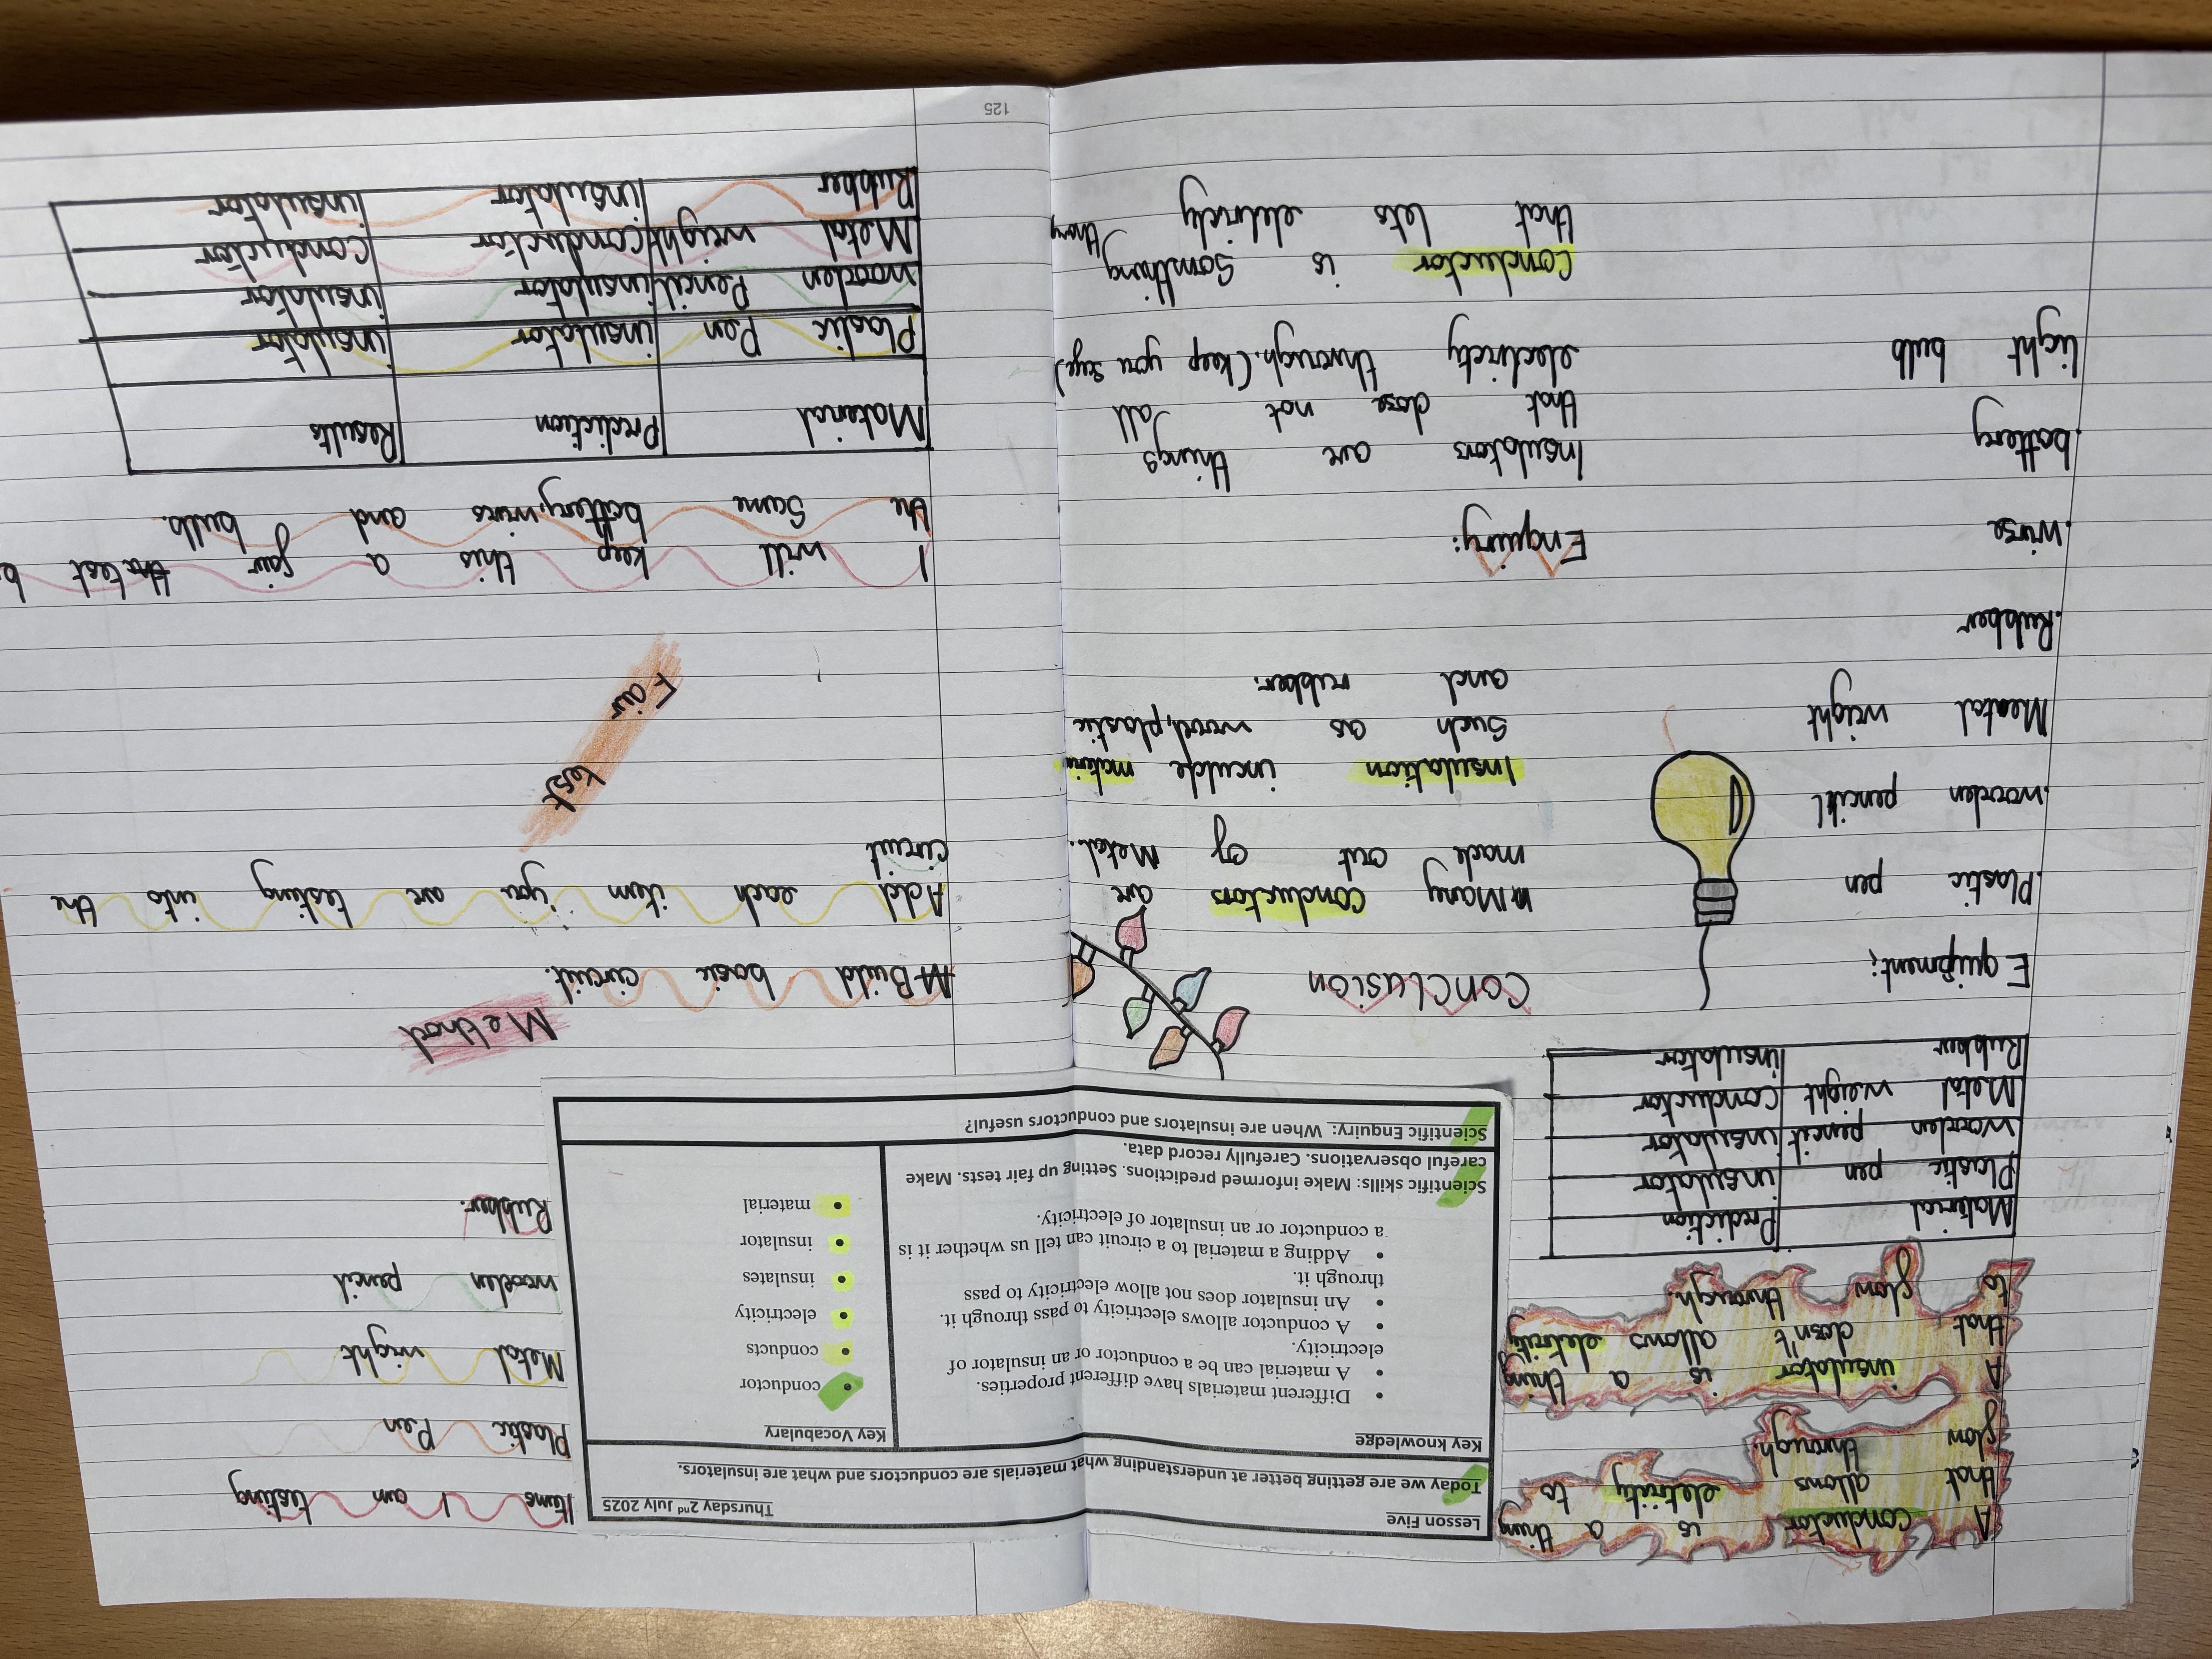 A conductor is a thing
that allows eletricity to
flow through.
A insulator is a thing
that doesn't allows eletricity
to flow through.
Material Prediction
Plastic pen insulator
wooden pencil insulator
Metal weight Conductor
Rubber insulator
Equipment:
.Plastic pen
.wooden pencil
Meatal weight
.Rubber
.wirse
.battery
light bulb
Lesson Five Thursday 2nd July 2025
Today we are getting better at understanding what materials are conductors and what are insulators.
Key Knowledge
• Different materials have different properties.
• A material can be a conductor or an insulator of
electricity.
• A conductor allows electricity to pass through it.
• An insulator does not allow electricity to pass
through it.
• Adding a material to a circuit can tell us whether it is
a conductor or an insulator of electricity.
Key Vocabulary
• conductor
• conducts
• electricity
• insulates
• insulator
• material
Scientific skills: Make informed predictions. Setting up fair tests. Make
careful observations. Carefully record data.
Scientific Enquiry: When are insulators and conductors useful?
Conclusion
Many conductors are
made out of Metal.
Insulation inculde
such as wood, plastic
and rubber.
Enquiry:
Insulators are things
that dose not all
electricity through. (keep you
Conductor is Somthing
that lets
Items I am testing
Plastic Pen
Metal weight
wooden pencil
Rubber.
Method
Build basic circuit.
Add each item you are testing into the
circuit
Fair test
I will keep this a fair test
the same battery, wires and bulb.
Material Prediction Results
Plastic Pen insulator insulator
wooden Pencil insulator insulator
Metal weight conductor Conductor
Rubber insulator insulator
125